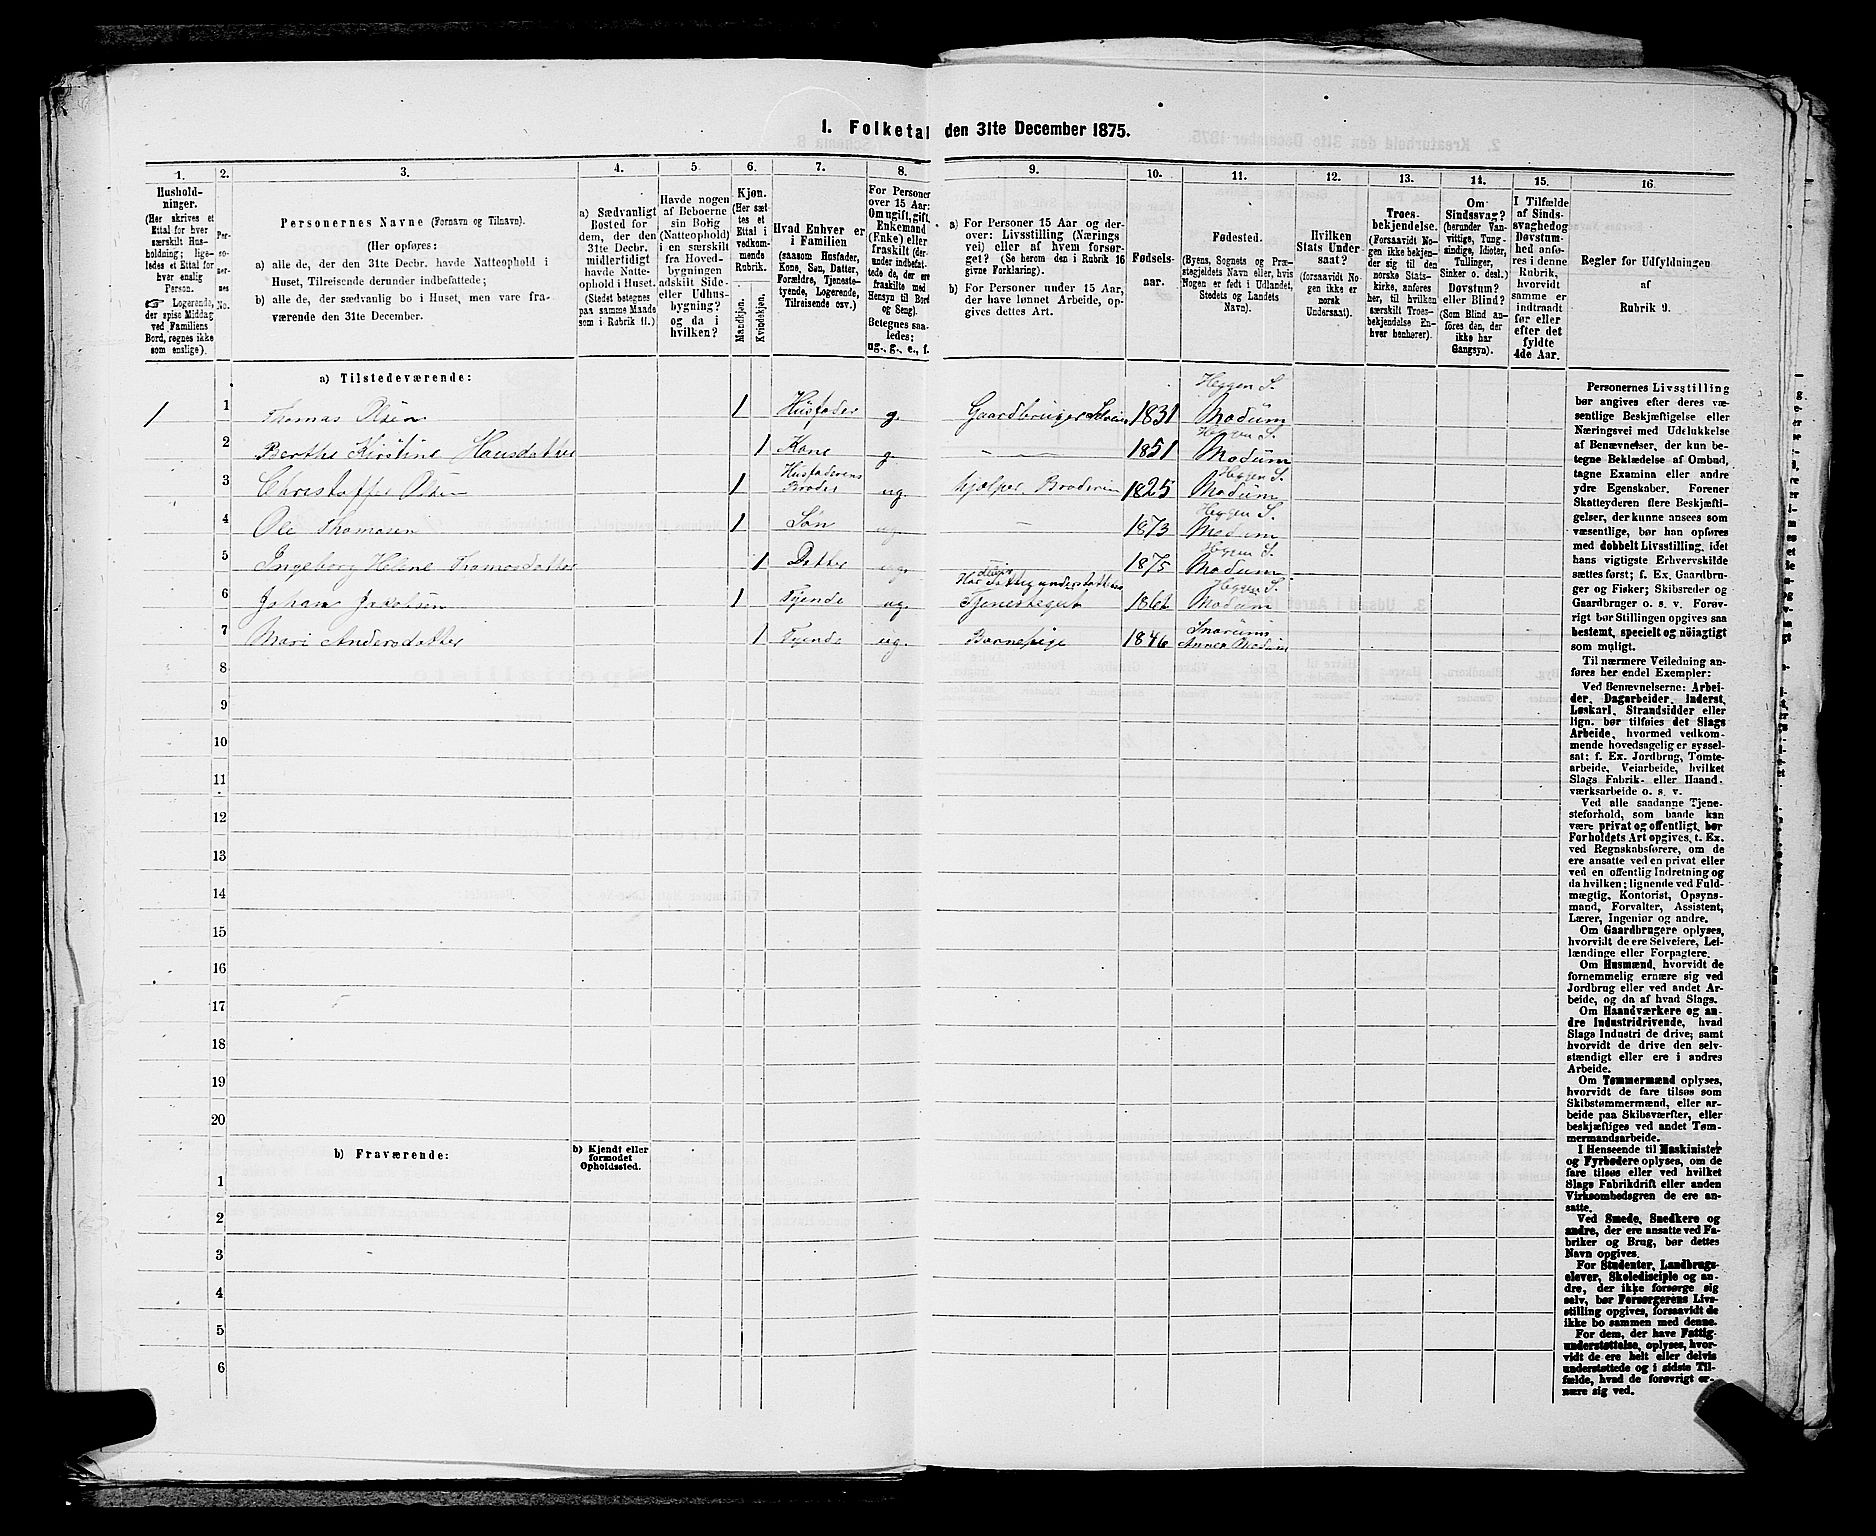 1. Folketal den 31te December 1875.
1.
Hushold-
ninger.
(Her skrives et
Ettal for hver
særskilt Hus-
holdning; lige-
ledes et Ettal for
hver enslig
Person.
☞ Logerende,
der spise Middag
ved Familiens
Bord, regnes ikke
som enslige).
2.
Per-
so-
ner-
nes
No.
3.
Personernes Navne (Fornavn og Tilnavn).
(Her opføres:
a) alle de, der den 31te Decbr. havde Natteophold i
Huset, Tilreisende derunder indbefattede;
b) alle de, der sædvanlig bo i Huset, men vare fra-
værende den 31te December.
4.
a) Sædvanligt
Bosted for
dem, der den
31te Decbr.
midlertidigt
havde Natte-
ophold i Huset.
(Stedet betegnes
paa samme Maade
som i Rubrik 11.)
5.
Havde nogen
af Beboerne
sin Bolig
(Natteophold)
i en særskilt
fra Hoved-
bygningen
adskilt Side-
eller Udhus-
bygning?
og da i
hvilken?
6.
Kjøn.
(Her sæt-
tes et
Ettal i
vedkom-
mende
Rubrik.
Mandkjøn.
Kvindekjøn.
7.
Hvad Enhver er
i Familien
(saasom Husfader,
Kone, Søn, Datter,
Forældre, Tjeneste-
tyende, Logerende,
Tilreisende osv.)
8.
For Personer
over 15 Aar:
Om ugift, gift,
Enkemand
(Enke) eller
fraskilt (der-
under indbefat-
tede de, der ere
fraskilte med
Hensyn til Bord
og Seng).
Betegnes saa-
ledes:
ug., g., e., f.
9.
a) For Personer 15 Aar og der-
over: Livsstilling (Nærings
vei) eller af hvem forsør-
get? (Se herom den i Rubrik 16
givne Forklaring).
b) For Personer under 15 Aar,
der have lønnet Arbeide, op-
gives dettes Art.
10.
Fødsels-
aar.
11.
Fødested.
(Byens, Sognets og Præ-
stegjeldets Navn eller, hvis
Nogen er født i Udlandet,
Stedets og Landets
Navn).
12.
Hvilken
Stats Under-
saat?
(forsaavidt No-
gen ikke er
norsk
Undersaat).
13.
Troes-
bekjendelse.
(Forsaavidt No-
gen ikke bekjen-
der sig til den
norske Stats-
kirke, anføres
her, til hvilken
særskilt Troes-
bekjendelse En-
hver benhører).
14.
Om
Sindssvag?
(herunder Van-
vittige, Tung-
sindige, Idioter,
Tullinger,
Sinker o. desl.)
Døvstum?
eller Blind?
(Som Blind an-
føres den, der
ikke har
Gangsyn).
15.
I Tilfælde
af Sinds-
svaghed og
Døvstum-
hed anfø-
res i denne
Rubrik,
hvorvidt
samme er
indtraadt
før eller
efter det
fyldte
4de Aar.
16
Regler for Udfyldningen
af
Rubrik 9.
a) Tilstedeværende:
1 1 Thomas Olsen 1 Husfader g. Gaardbruger Selveier 1831 Heggen S. Modum
2 Berthe Kirstine Hansdatter 1 Kone g — 1851 Heggen S. Modum
3 Christoffer Olsen 1 Husfaderens Broder ug. hjælper Broderen 1825 Heggen S. Modum
4 Ole Thomasen 1 Søn ug. — 1873 Heggen S. Modum
5 Ingeborg Helene Thomasdatter 1 Datter ug. 1875 Heggen S. Modum
6 Johan Jakobsen 1 Tyende ug. Tjenestegut 1861 Heggen S. Modum
7 Mari Andersdatter 1 Tyende ug. Barnepige 1846 Snarums Annex Modum
8
9
10
11
12
13
14
15
16
17
18
19
20
b) Fraværende:
b) Kjendt eller
formodet
Opholdssted.
1
2
3
4
5
6
Personernes Livsstilling
bør angives efter deres væ-
sentlige Beskjæftigelse eller
Næringsvei med Udelukkelse
af Benævnelser, der kun be-
tegne Beklædelse af Ombud,
tagne Examina eller andre
ydre Egenskaber. Forener
Skatteyderen flere Beskjæfti-
gelser, der kunne ansees som
væsentlige, bør han opføres
med dobbelt Livsstilling, idet
hans vigtigste Erhvervskilde
sættes først; f. Ex. Gaardbru-
ger og Fisker; Skibsreder og
Gaardbruger o. s. v. Forøv-
rigt bør Stillingen opgives saa
bestemt, specielt og nöiagtigt
som muligt.
Til nærmere Veiledning an-
føres her endel Exempler:
Ved Benævnelserne: Arbei-
der, Dagarbeider, Inderst,
Løskarl, Strandsidder eller
lign. bør tilføies det Slags
Arbeide, hvormed vedkom-
mende hovedsagelig er syssel-
sat; f. Ex. Jordbrug, Tomte-
arbeide, Veiarbeide, hvilket
Slags Fabrik- eller Haand-
værksarbeide o. s. v.
Ved alle saadanne Tjene-
steforhold, som baade kan
være privat og offentligt, bør
Forholdets Art opgives, t. Ex.
ved Regnskabsførere, om de
ere ansatte ved en privat eller
ved en offentlig Indretning og
da hvilken; lignende ved Fuld-
mægtig, Kontorist, Opsyns-
mand, Forvalter, Assistent,
Lærer, Ingeniør og andre.
Om Gaardbrugere oplyses,
hvorvidt de ere Selveiere, Lei-
lændinge eller Forpagtere.
Om Husmænd, hvorvidt de
fornemmelig ernære sig ved
Jordbrug eller ved andet Ar-
beide, og da af hvad Slags.
Om Haandværkere og an-
dre Industridrivende, hvad
Slags Industri de drive; samt
hvorvidt de drive den selv-
stændigt eller ere i andres
Arbeide.
Om Tømmermænd oplyses,
hvorvidt de fare tilsøs som
Skibstømmermænd, eller ar-
beide paa Skibsværfter, eller
beskjæftiges ved andet Tøm-
mermandsarbeide.
I Henseende til Maskinister
og Fyrbødere oplyses, om de
fare tilsøs eller ved hvilket
Slags Fabrikdrift eller anden
Virksomhedsgren de ere an-
satte.
Ved Smede, Snedkere og
andre, der ere ansatte ved Fa-
briker og Brug, bør dettes
Navn opgives.
For Studenter, Landbrugs-
elever, Skoledisciple og an-
dre, der ikke forsørge sig
selv, bør Forsørgerens Livs-
stilling opgives, forsaavidt de
ikke bo sammen med denne.
For dem, der have Fattig-
understøttelse, oplyses, hvor-
vidt de ere helt eller delvis
understøttede og i sidste Til-
fælde, hvad de forøvrigt er-
nære sig ved.